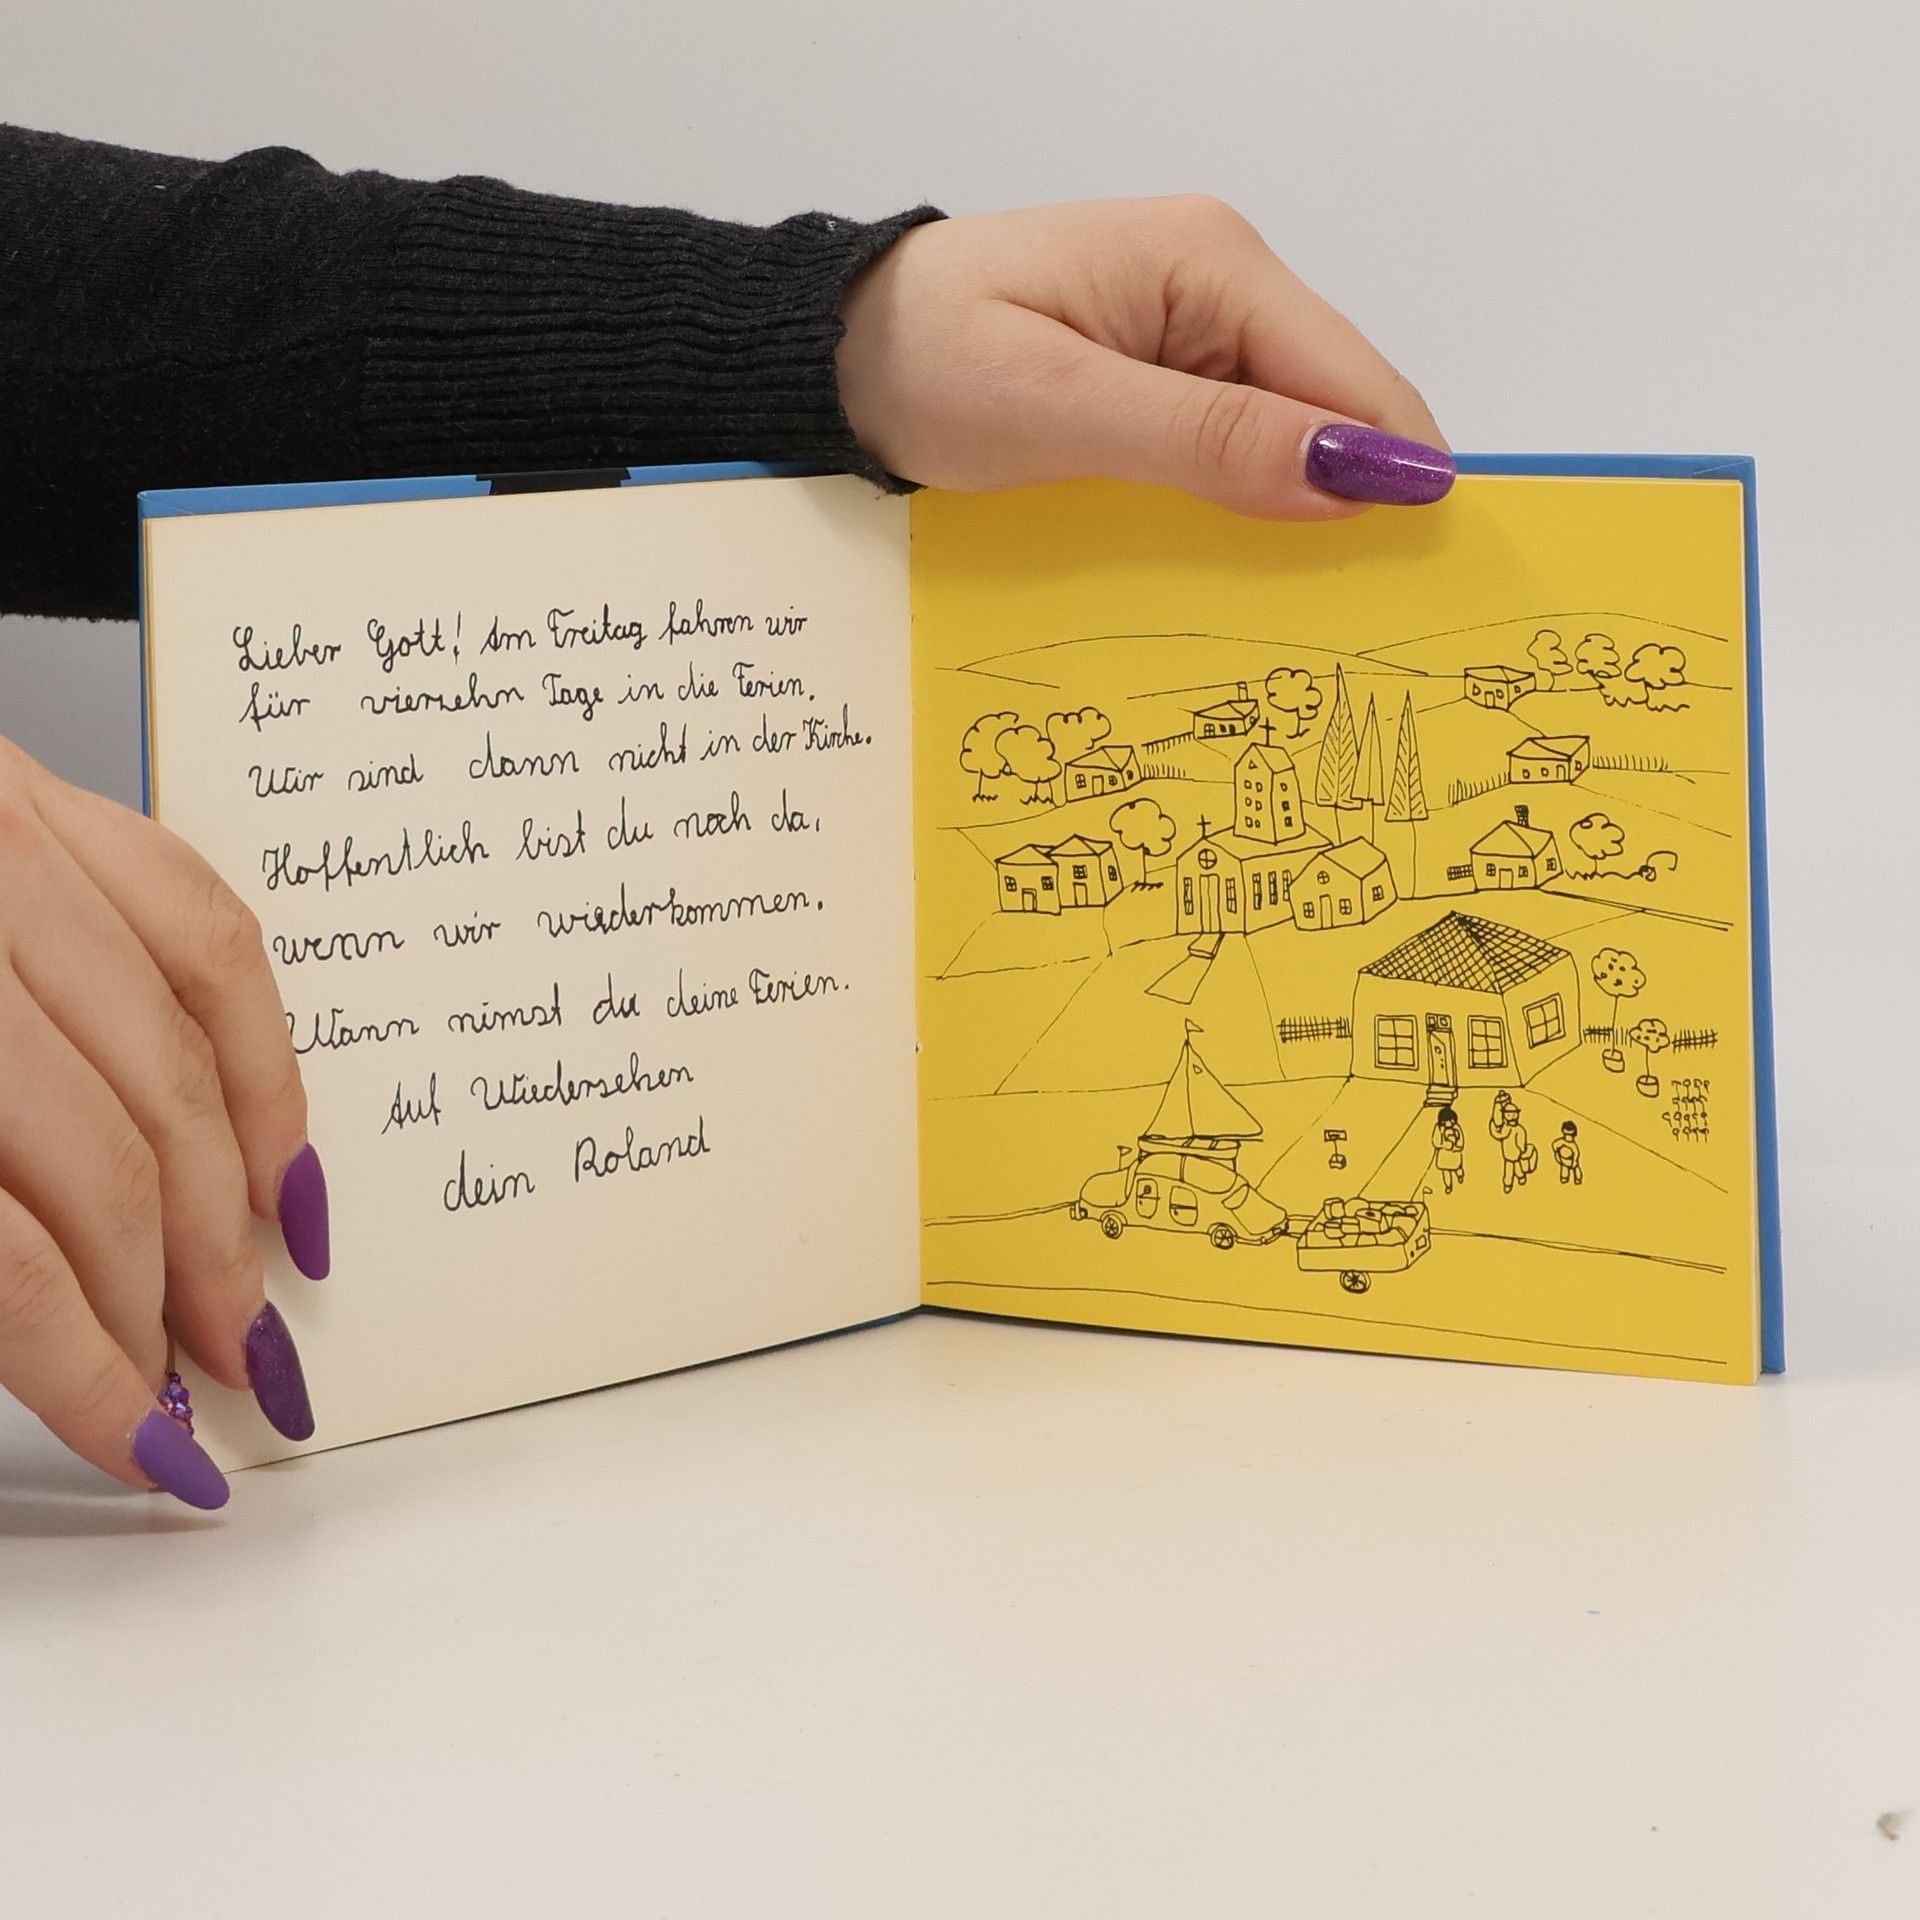 Lieber Gott! Am Freitag fahren wir
für vierzehn Tage in die Ferien.
Wir sind dann nicht in der Kirche.
Hoffentlich bist du noch da,
wenn wir wiederkommen.
Wann nimst du deine Ferien.
Auf Wiedersehen
dein Roland